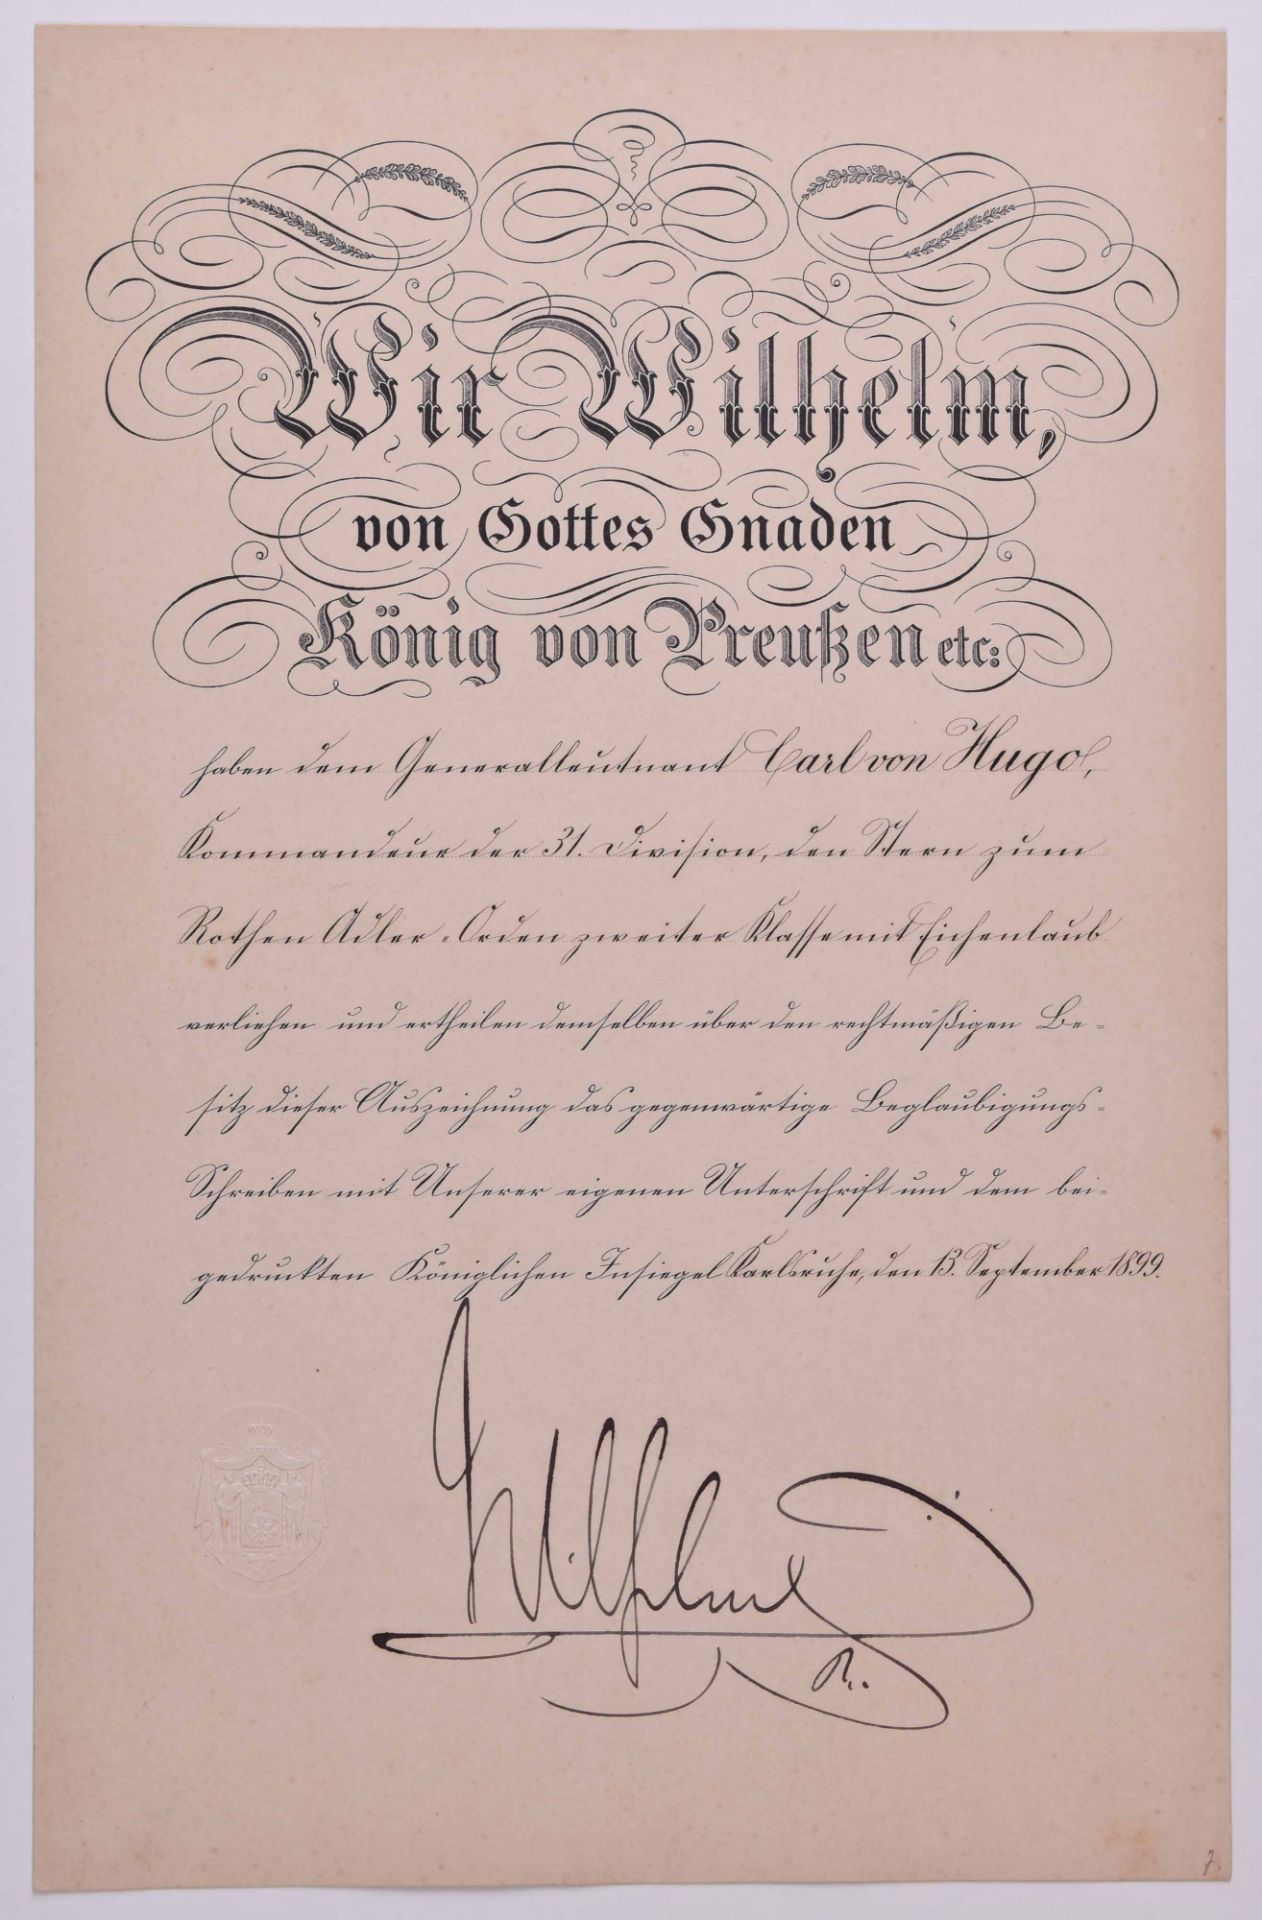 Wir Wilhelm,
von Gottes Gnaden
König von Preußen etc:
haben dem Generalleutnant Carl von Hugo,
Kommandeur der 31. Division, den Stern zum
Rothen Adler-Orden zweiter Klasse mit Eichenlaub
verliehen und ertheilen demselben über den rechtmäßigen Be-
sitz dieser Auszeichnung das gegenwärtige Beglaubigungs-
Schreiben mit Unserer eigenen Unterschrift und dem bei-
gedruckten Königlichen Insiegel Karlsruhe, den 13. September 1899.
Wilhelm
R.
7.